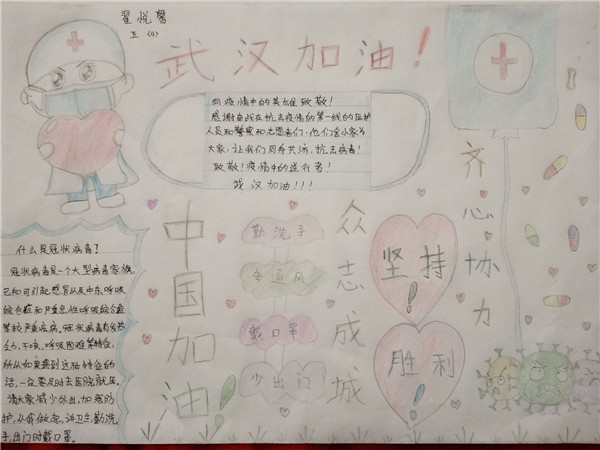 翟悦馨
五(4)
武汉加油！
向疫情中的英雄致敬！
感谢奋战在抗击疫情的第一线的医护
人员和警察和志愿者们，他们舍小家为
大家，让我们同舟共济，抗击病毒！
致敬！疫情中的逆行者！
武汉加油！！！
什么是冠状病毒？
冠状病毒是一个大型病毒家族，
已知可引起感冒以及中东呼吸
综合征和严重急性呼吸综合征
等较严重疾病。冠状病毒有发热
乏力、干咳、呼吸困难等特征，
所以如果遇到这些特征的
话，一定要及时去医院就医。
请大家减少外出，加强防
护，从我做起，讲卫生勤洗
手，出门时戴口罩。
中国加油！
勤洗手
多通风
戴口罩
少出门
众志成城
坚持！
胜利！
齐心协力